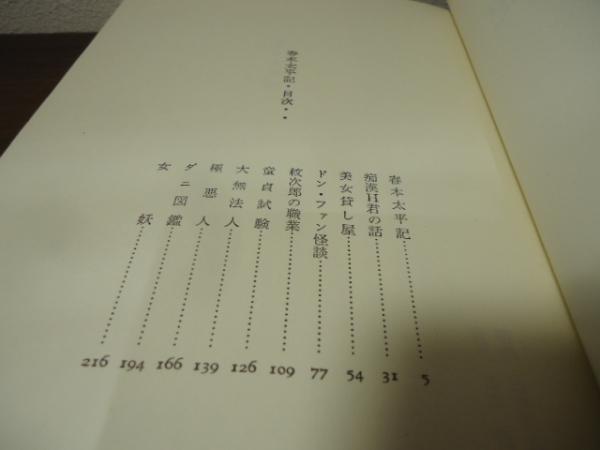 春本太平記・目次・・
春本太平記 5
痴漢H君の話 31
美女貸し屋 54
ドン・ファン怪談 77
紋次郎の職業 109
童貞試験 126
大無法人 139
極悪人 166
ダニ図鑑 194
女妖 216